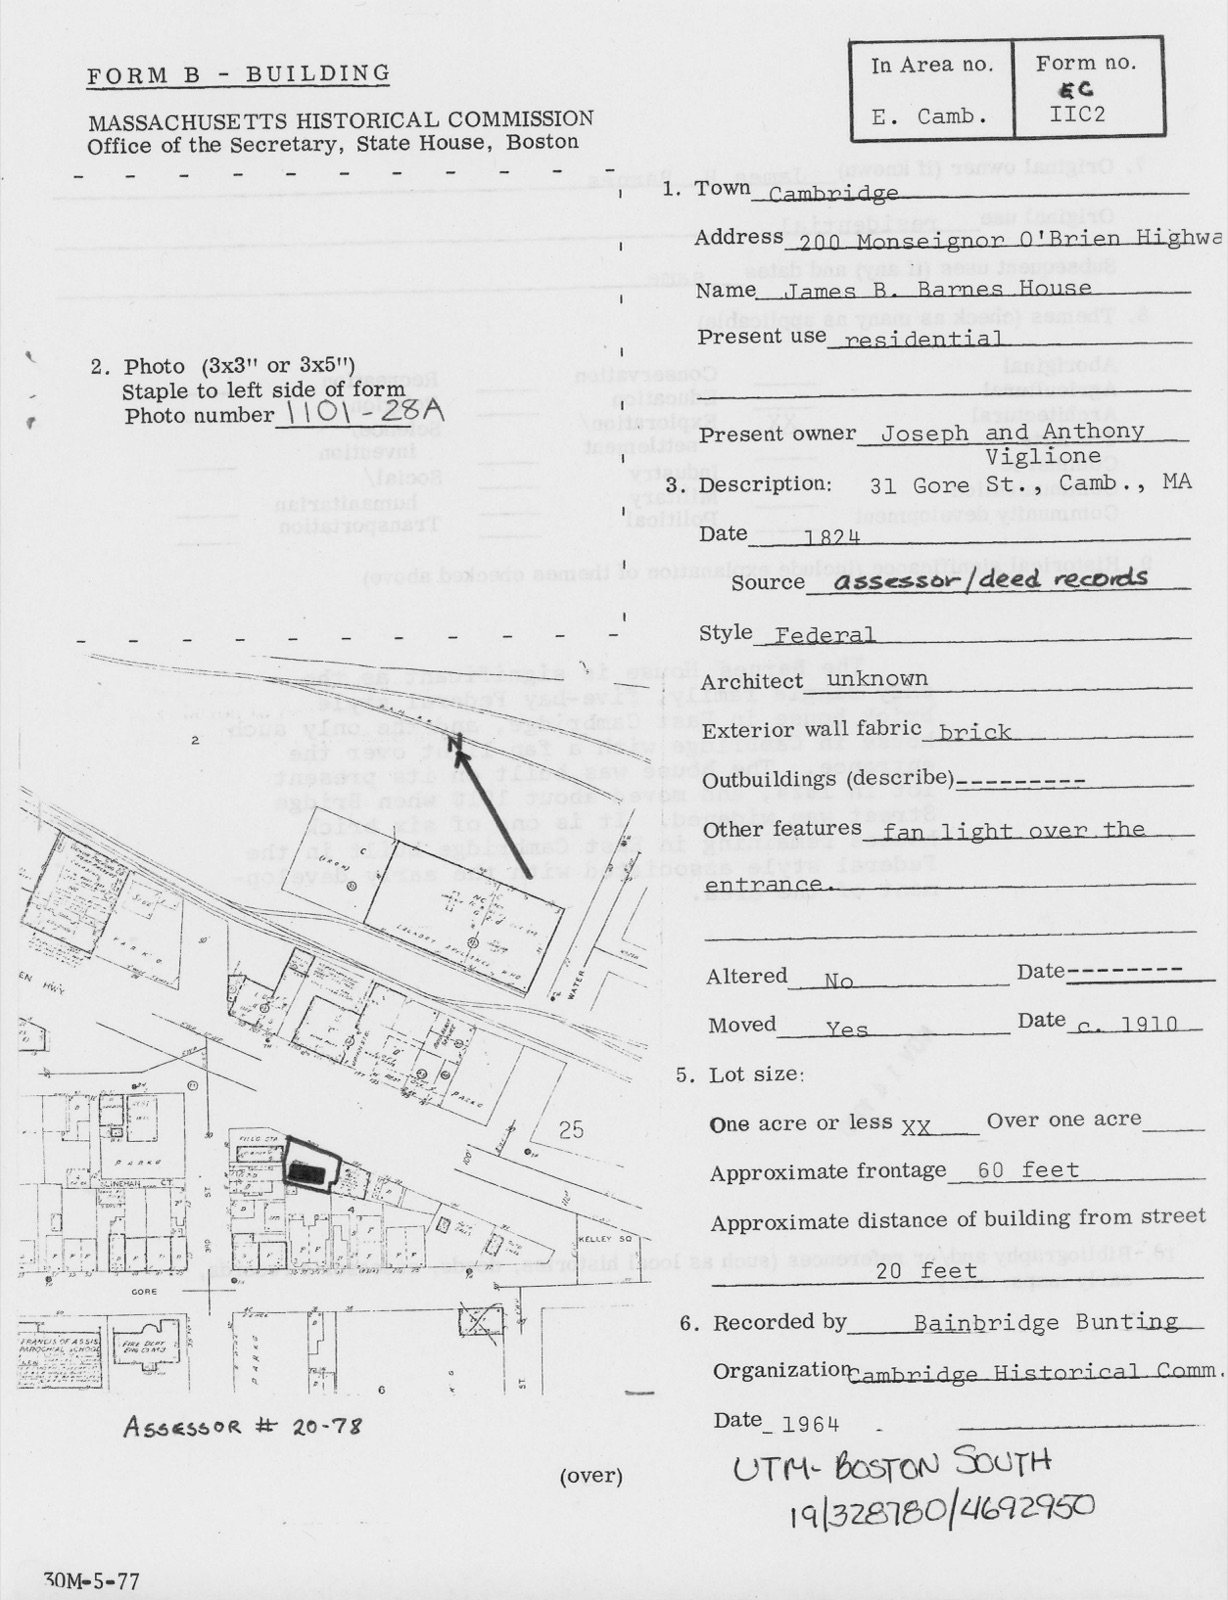 FORM B - BUILDING
MASSACHUSETTS HISTORICAL COMMISSION
Office of the Secretary, State House, Boston
In Area no.
E. Camb.
Form no.
EC
IIC2
1. Town Cambridge
Address 200 Monseignor O'Brien Highwa
Name James B. Barnes House
Present use residential
2. Photo (3x3" or 3x5")
Staple to left side of form
Photo number 1101-28A
Present owner Joseph and Anthony
Viglione
3. Description: 31 Gore St., Camb., MA
Date 1824
Source assessor/deed records
Style Federal
Architect unknown
Exterior wall fabric brick
Outbuildings (describe)---------
Other features fan light over the
entrance.
Altered No Date--------
Moved Yes Date c. 1910
5. Lot size:
One acre or less XX Over one acre
Approximate frontage 60 feet
Approximate distance of building from street
20 feet
6. Recorded by Bainbridge Bunting
Organization Cambridge Historical Comm.
Date 1964
UTM- BOSTON SOUTH
19/328780/4692950
2
N
WATER
EN HWY
PARKG
25
FILLG STA
PARKG
LINEHAN CT
ST
3RD
4
KELLEY SQ
GORE
FRANCIS OF ASSIS
PAROCHIAL SCHOOL
FIRE DEPT
ENG CO NO 3
PARKG
6
ST
ASSESSOR # 20-78
(over)
30M-5-77